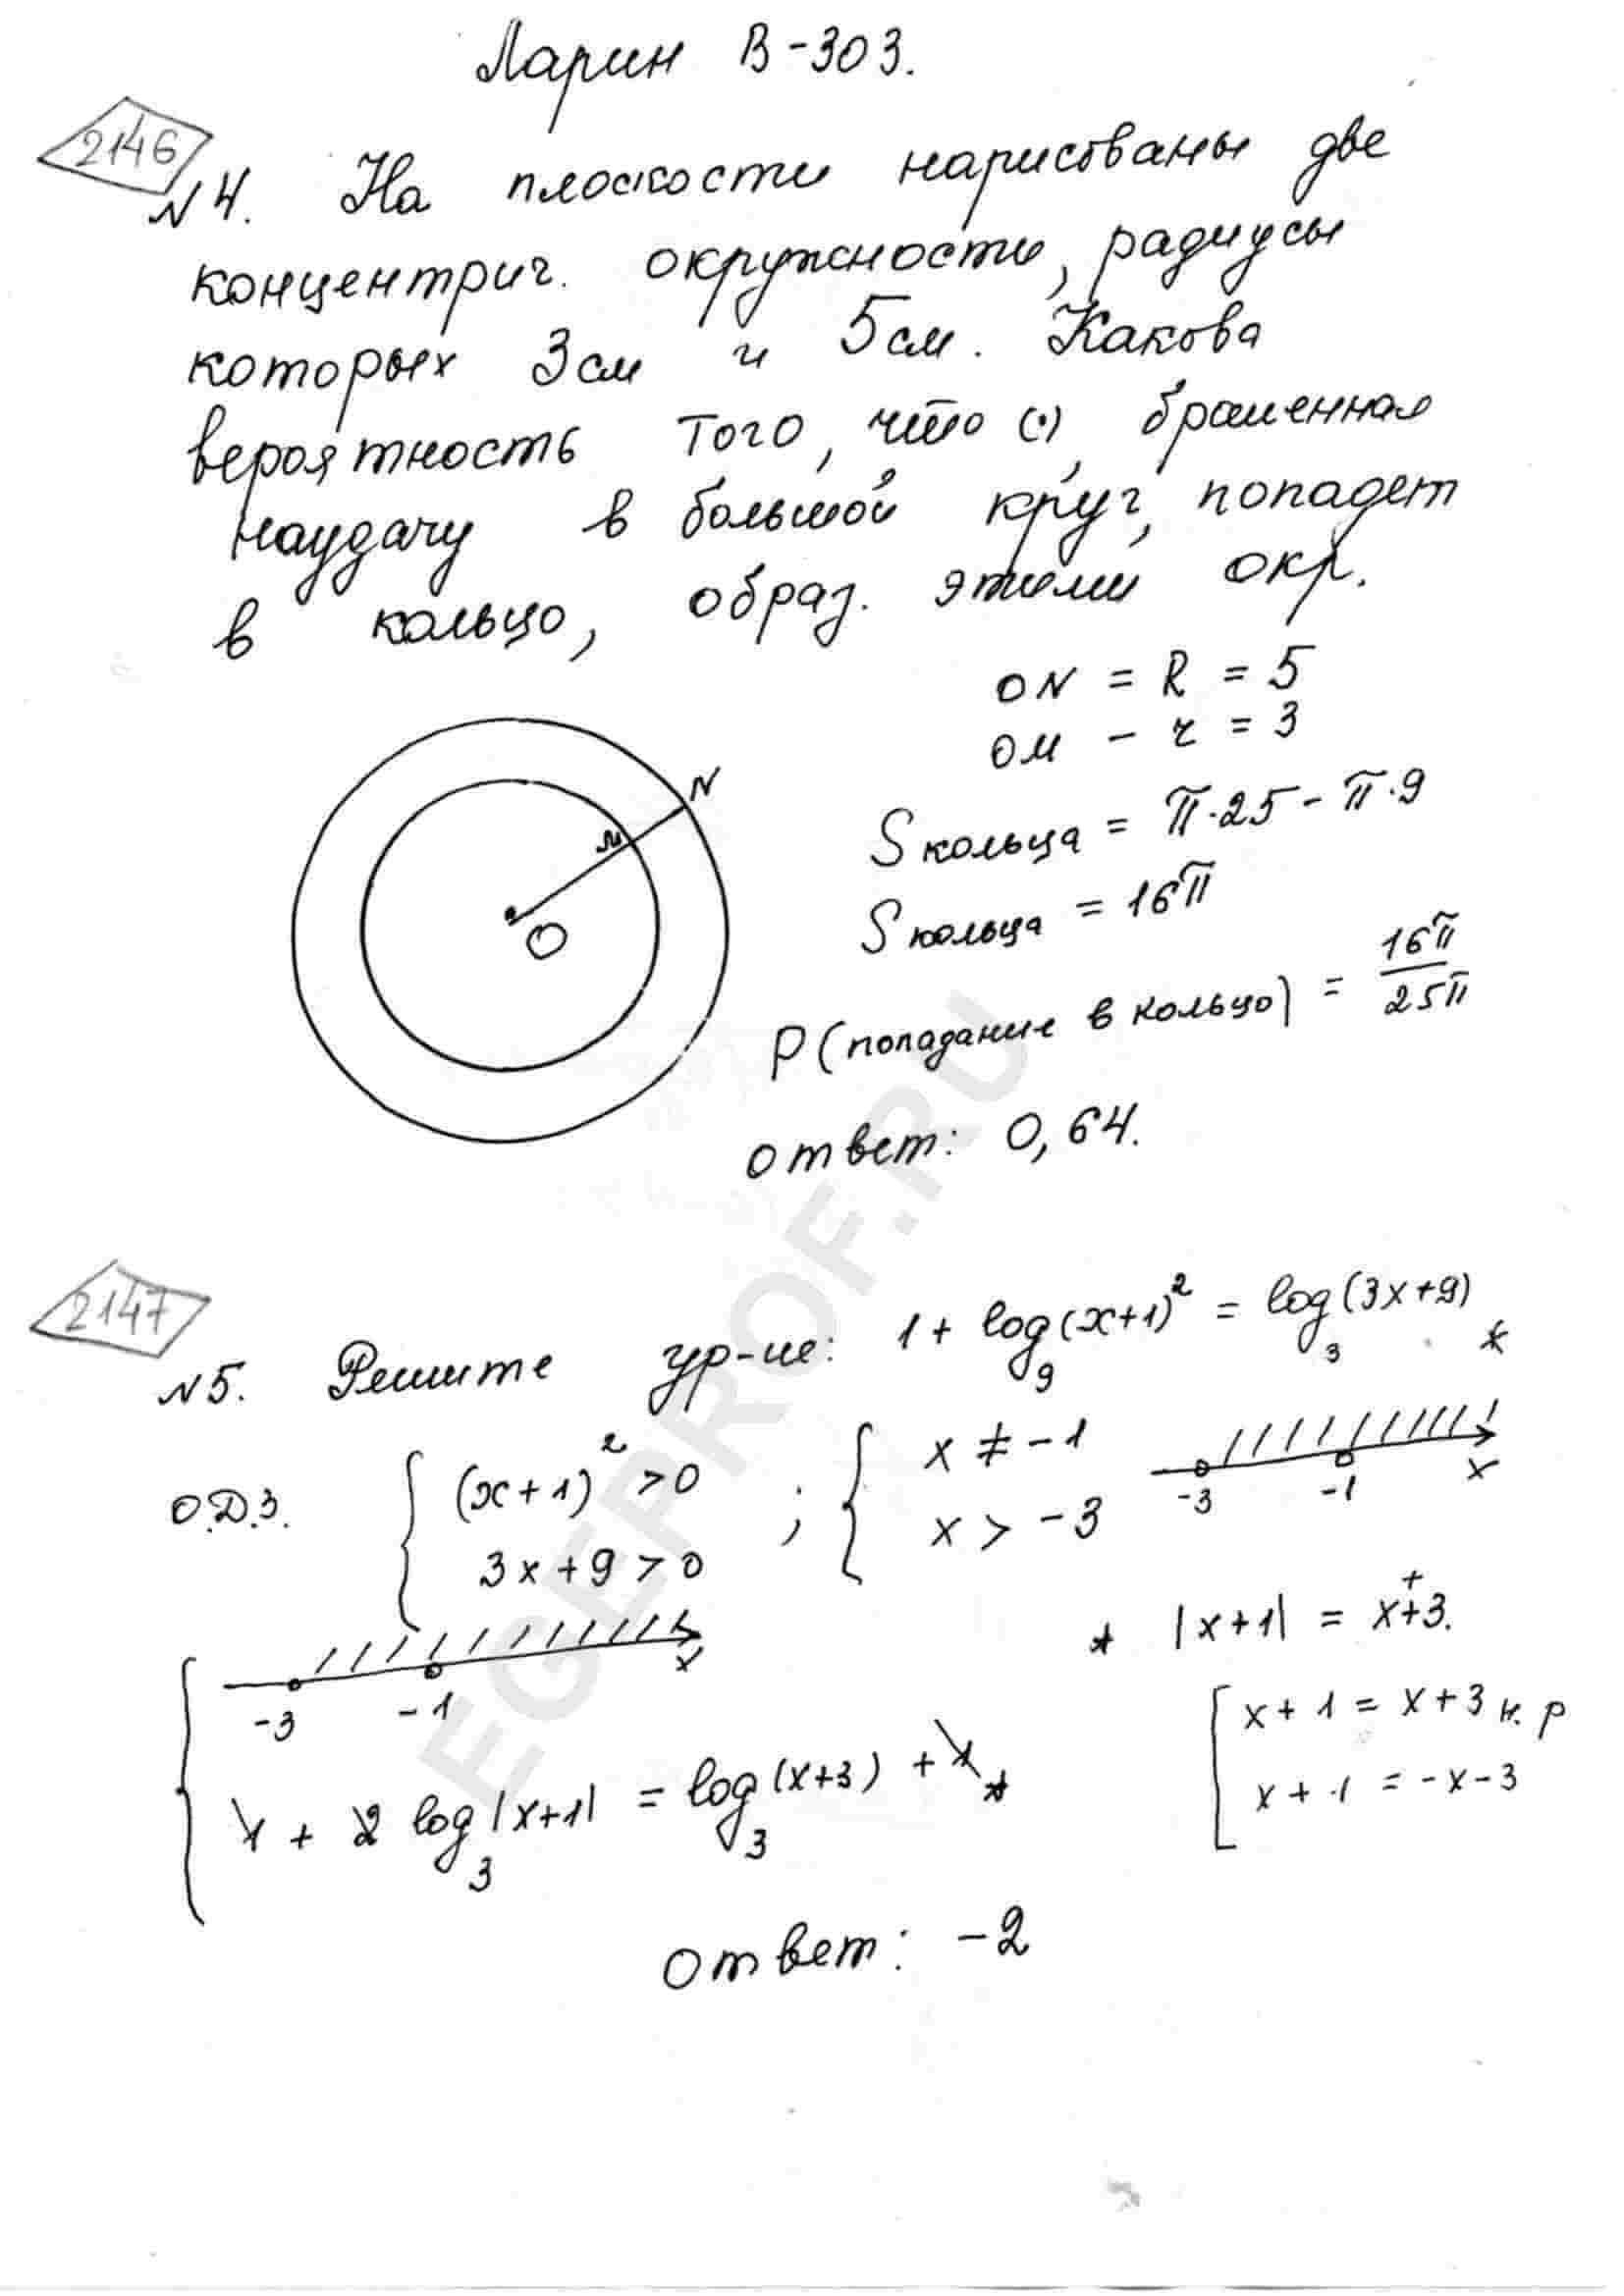 Ларин В-303.
2146
N4. На плоскости нарисованы две
концентрич. окружности, радиусы
которых 3см и 5см. Какова
вероятность того, что (·), брошенная
наудачу в большой круг, попадет
в кольцо, образ. этими окр.
ON = R = 5
OM - r = 3
N
M
O
S кольца = π·25 - π·9
S кольца = 16π
P(попадание в кольцо) = 16π/25π
ответ: 0,64.
2147
N5. Решите ур-ие: 1 + log₉(x+1)² = log₃(3x+9) *
О.Д.З. { (x+1)² > 0 ; { x ≠ -1
3x+9 > 0 x > -3
-3 -1 x
-3 -1 x
1 + 2 log₃|x+1| = log₃(x+3) + 1 *
* |x+1| = x+3.
+
[ x+1 = x+3 н.р
x+1 = -x-3
ответ: -2
EGEPROF.RU